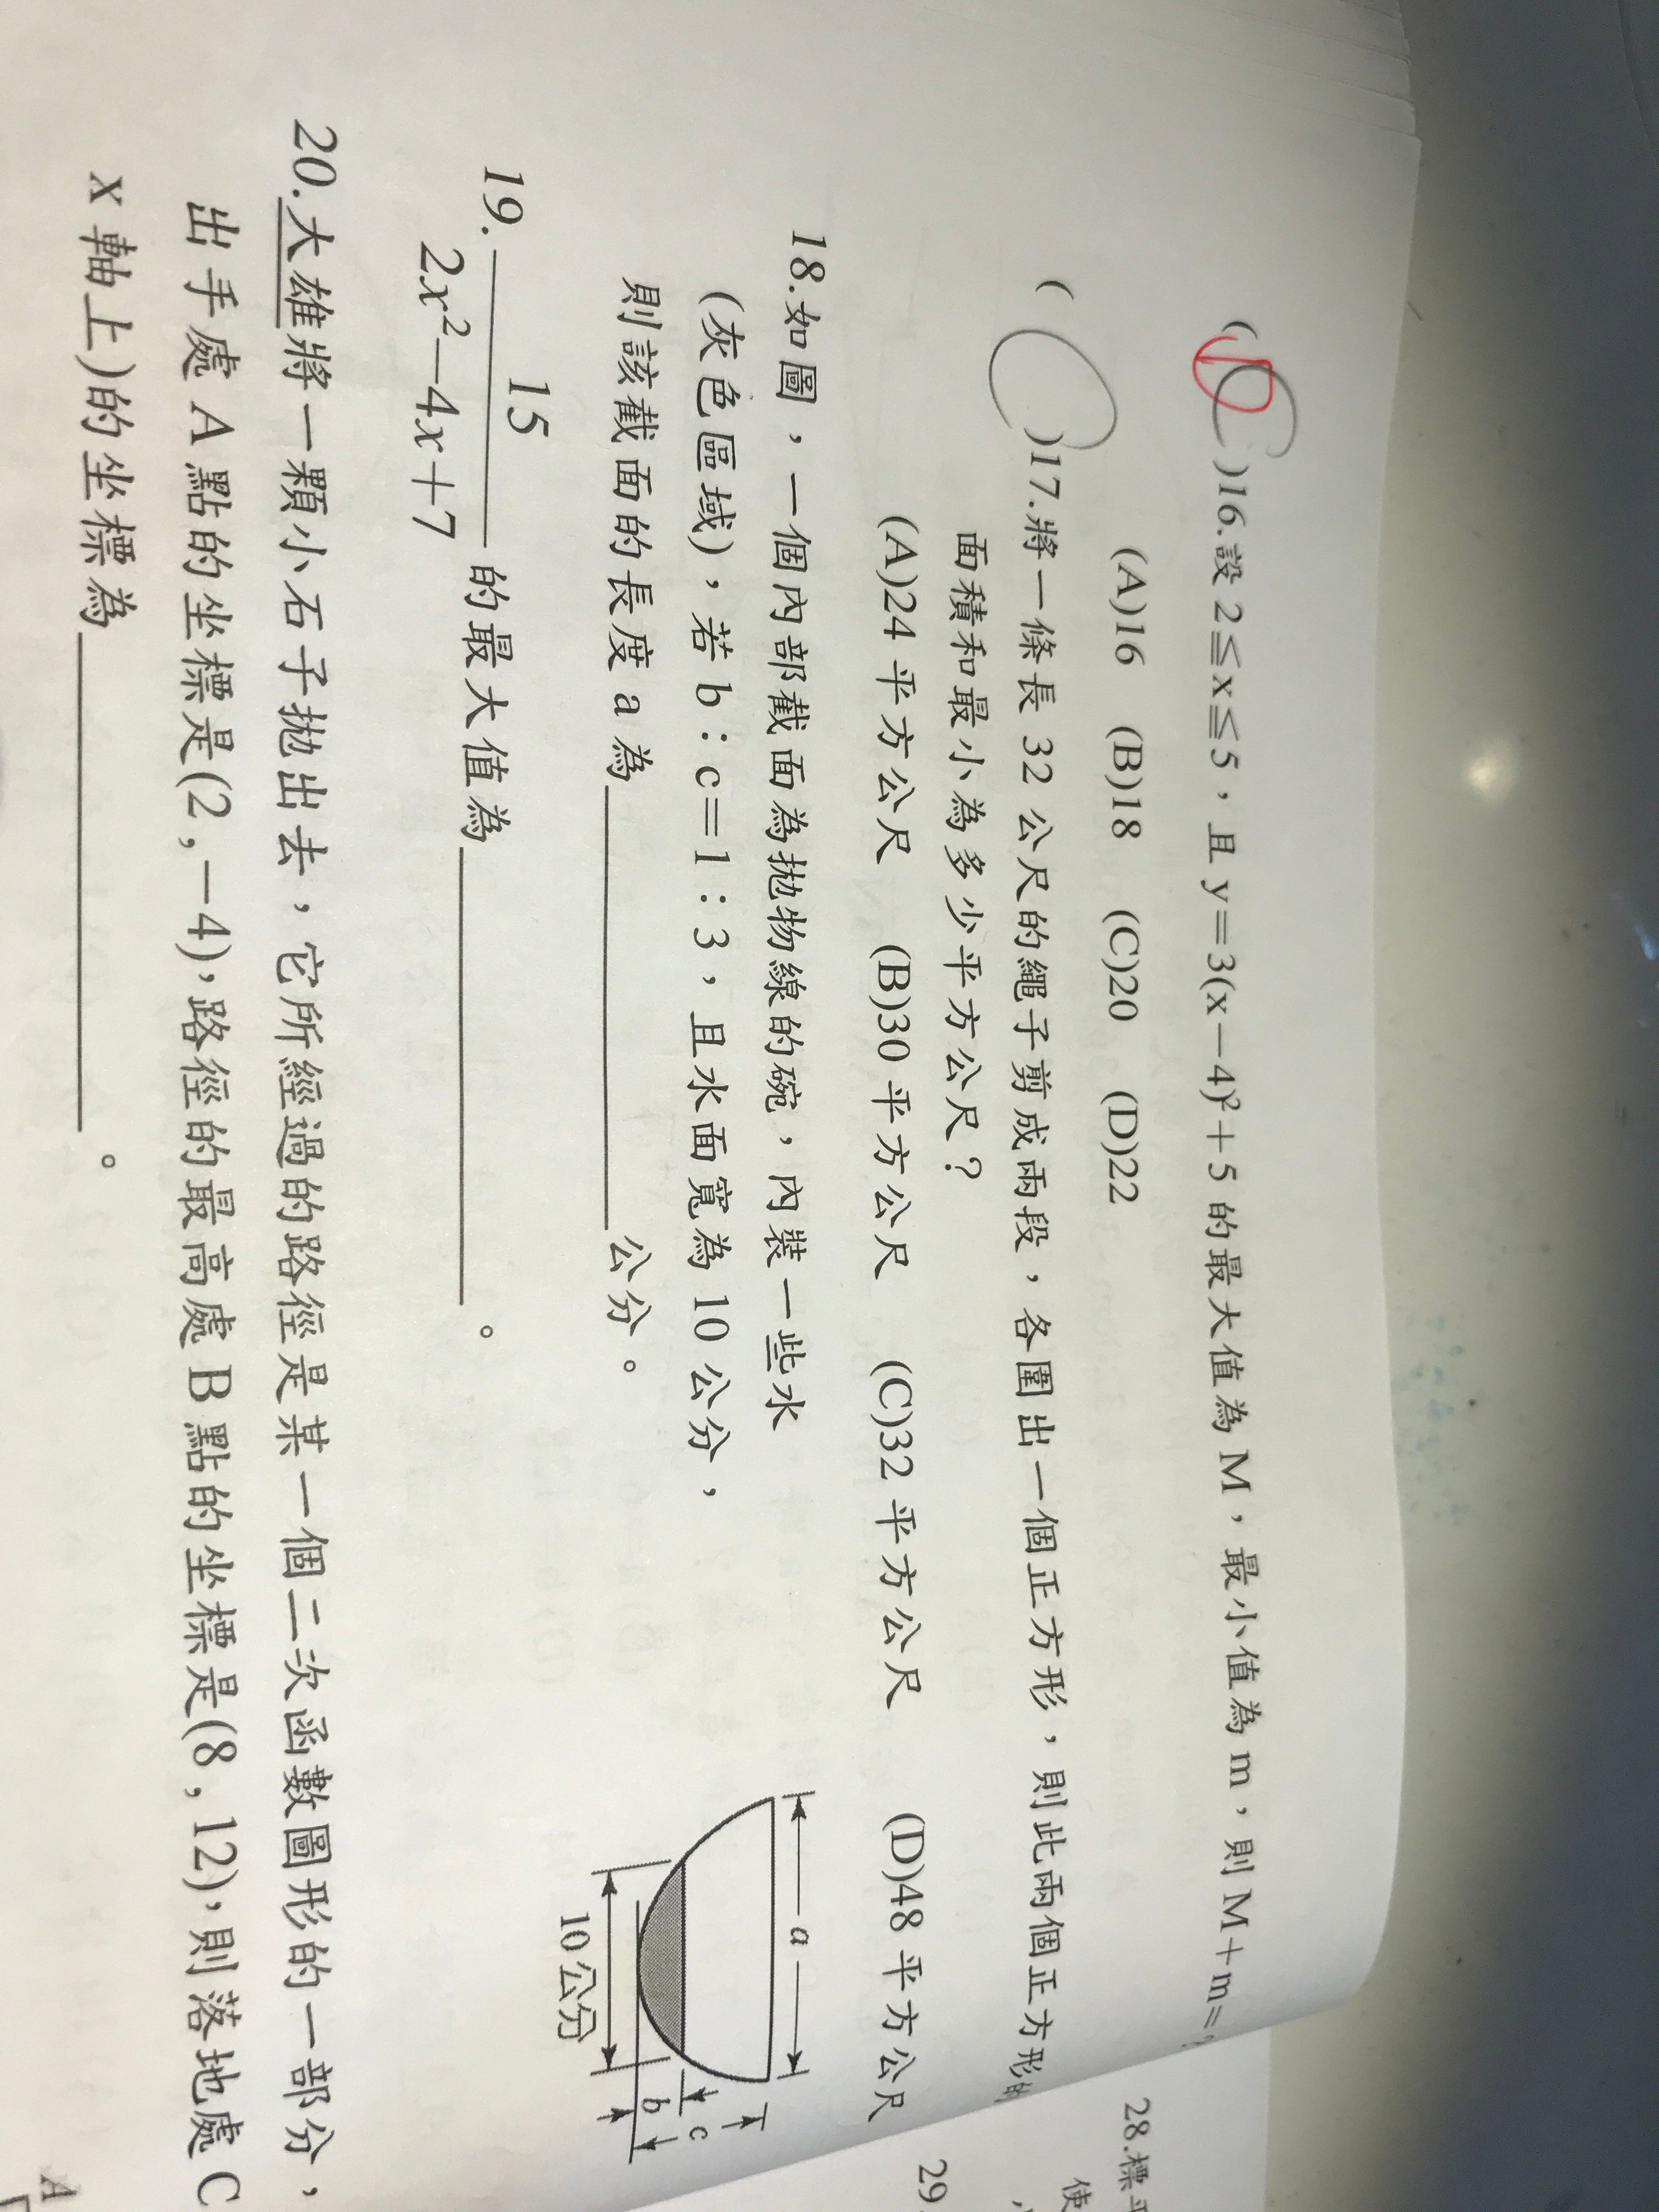 ( )16.設 2≦x≦5，且 y=3(x-4)²+5 的最大值為 M，最小值為 m，則 M+m=?
(A)16 (B)18 (C)20 (D)22
( )17.將一條長 32 公尺的繩子剪成兩段，各圍出一個正方形，則此兩個正方形的
面積和最小為多少平方公尺？
(A)24 平方公尺 (B)30 平方公尺 (C)32 平方公尺 (D)48 平方公尺
18.如圖，一個內部截面為拋物線的碗，內裝一些水
(灰色區域)，若 b：c=1：3，且水面寬為 10 公分，
則該截面的長度 a 為 公分。
a
c
b
10公分
19. 15
2x²-4x+7 的最大值為 。
20.大雄將一顆小石子拋出去，它所經過的路徑是某一個二次函數圖形的一部分，
出手處 A 點的坐標是(2,-4)，路徑的最高處 B 點的坐標是(8,12)，則落地處 C
x 軸上)的坐標為 。
A
28.標
使
29.